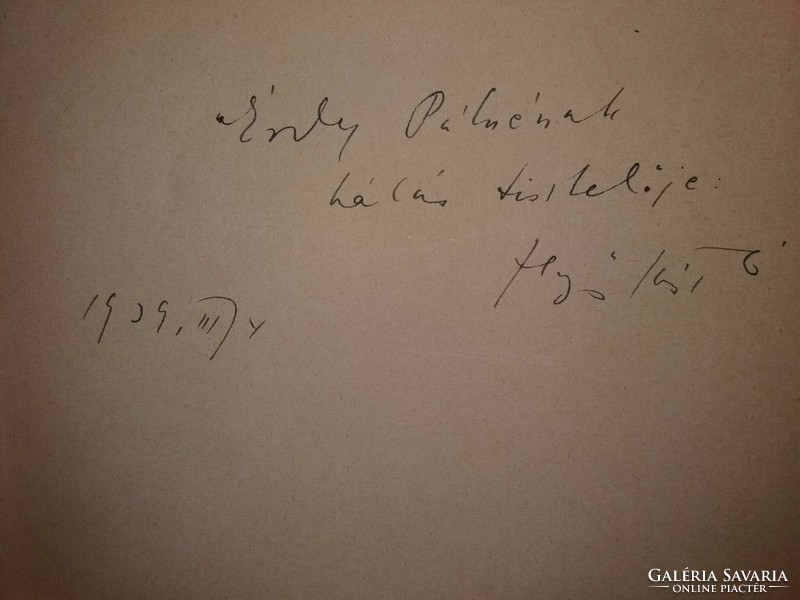 Érdy Pálnénak
hálás tisztelője:
1939. III/4
GALÉRIA SAVARIA
ONLINE PIACTÉR